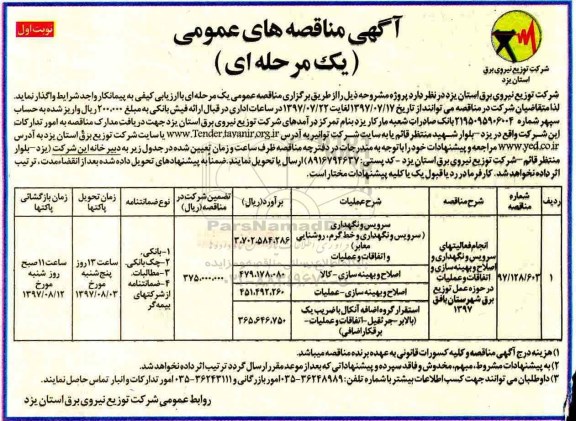 نوبت اول
آگهی مناقصه های عمومی
(یک مرحله ای)
شرکت توزیع نیروی برق
استان یزد
شرکت توزیع نیروی برق استان یزد در نظر دارد پروژه مشروحه ذیل را از طریق برگزاری مناقصه عمومی یک مرحله ای با ارزیابی کیفی به پیمانکار واجد شرایط واگذار نماید.
لذا متقاضیان شرکت در مناقصه می توانند از تاریخ ۱۳۹۷/۰۷/۱۷ لغایت ۱۳۹۷/۰۷/۲۲ در ساعات اداری در قبال ارائه فیش بانکی به مبلغ ۲۰۰.۰۰۰ ریال واریز شده به حساب
سپهر شماره ۲۱۹۵۰۹۵۹۰۶۰۰۴ بانک صادرات شعبه مار کار یزد بنام تمرکز درآمدهای شرکت توزیع نیروی برق استان یزد جهت دریافت مدارک مناقصه به امور تدارکات
این شرکت واقع در یزد-بلوار شهید منتظر قائم یا به سایت شرکت توانیر به آدرس www.Tender.tavanir.org.ir یا سایت شرکت توزیع برق استان یزد به آدرس
www.yed.co.ir مراجعه و پیشنهادات خود را با توجه به مندرجات در دفترچه مناقصه ظرف ساعت و زمان تعیین شده در جدول زیر به دبیرخانه این شرکت (یزد-بلوار
منتظر قائم-شرکت توزیع نیروی برق استان یزد -کد پستی: ۸۹۱۶۷۹۴۶۳۷) ارسال یا تحویل نمایند. ضمنا به پیشنهادهای تحویل داده شده بعد از انقضاء مدت، ترتیب
اثر داده نخواهد شد. کارفرما در رد یا قبول یک یا کلیه پیشنهادات مختار است.
ردیف | شماره مناقصه | شرح مناقصه | شرح عملیات | برآورد (ریال) | تضمین شرکت در مناقصه (ریال) | نوع ضمانتنامه | زمان تحویل پاکتها | زمان بازگشائی پاکتها
۱ | ۹۷/۱۲۸/۶۰۳ | انجام فعالیتهای سرویس و نگهداری و اصلاح و بهینه سازی و اتفاقات و عملیات در حوزه عمل توزیع برق شهرستان بافق ۱۳۹۷
سرویس و نگهداری (سرویس و نگهداری و خط گرم، روشنایی معابر) و اتفاقات و عملیات | ۳.۷۰۲.۵۸۴.۲۸۶
اصلاح و بهینه سازی - کالا | ۴۷۹.۱۷۸.۰۸۰
اصلاح و بهینه سازی-عملیات | ۴۵۱.۴۹۲.۲۶۰
استقرار گروه اضافه آنکال با ضریب یک (بالابر-جرثقیل-اتفاقات و عملیات-برقکار اضافی) | ۳۶۵.۶۴۶.۷۵۰
۳۷۵.۰۰۰.۰۰۰
۱-بانکی.
۲-چک بانکی.
۳-مطالبات.
۴-ضمانتنامه از شرکتهای بیمه گر
ساعت ۱۳ روز پنج شنبه مورخ ۱۳۹۷/۰۸/۰۳
ساعت ۱۱ صبح روز شنبه مورخ ۱۳۹۷/۰۸/۱۲
۱) هزینه درج آگهی مناقصه و کلیه کسورات قانونی به عهده برنده مناقصه میباشد.
۲) به پیشنهادات مشروط، مبهم، مخدوش و فاقد سپرده و پیشنهاداتی که بعد از موعد مقرر ارسال گردد ترتیب اثر داده نخواهد شد.
۳) داوطلبان می توانند جهت کسب اطلاعات بیشتر با شماره تلفن: ۳۶۲۴۸۹۸۹-۰۳۵ امور بازرگانی و ۳۶۲۴۳۱۱۱-۰۳۵ امور تدارکات و انبار تماس حاصل نمایند.
روابط عمومی شرکت توزیع نیروی برق استان یزد